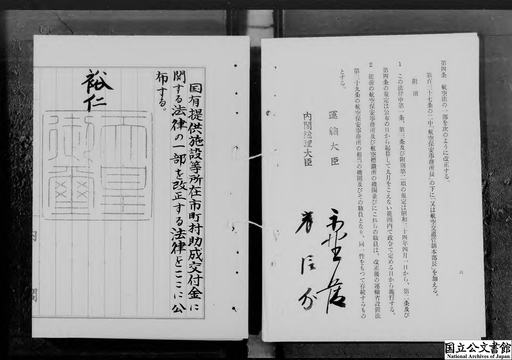 第四条 航空法の一部を次のように改正する。
第百三十七条の二中「航空保安事務所長」の下に「又は航空交通管制本部長」を加える。
附則
1 この法律中第一条、第三条及び附則第二項の規定は昭和三十四年四月一日から、第二条及び
第四条の規定は公布の日から起算して九月をこえない範囲内で政令で定める日から施行する。
2 従前の航空保安事務所及び航空標識所の機関並びにこれらの職員は、改正後の運輸省設置法
第三十九条の航空保安事務所の相当の機関及びその職員となり、同一性をもつて存続するもの
とする。
運輸大臣
内閣総理大臣
岸信介
国有提供施設等所在市町村助成交付金に
関する法律の一部を改正する法律をここに公
布する。
裕仁
天皇
御璽
内閣
国立公文書館
National Archives of Japan